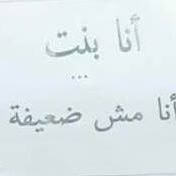 أنا بنت
...
أنا مش ضعيفة